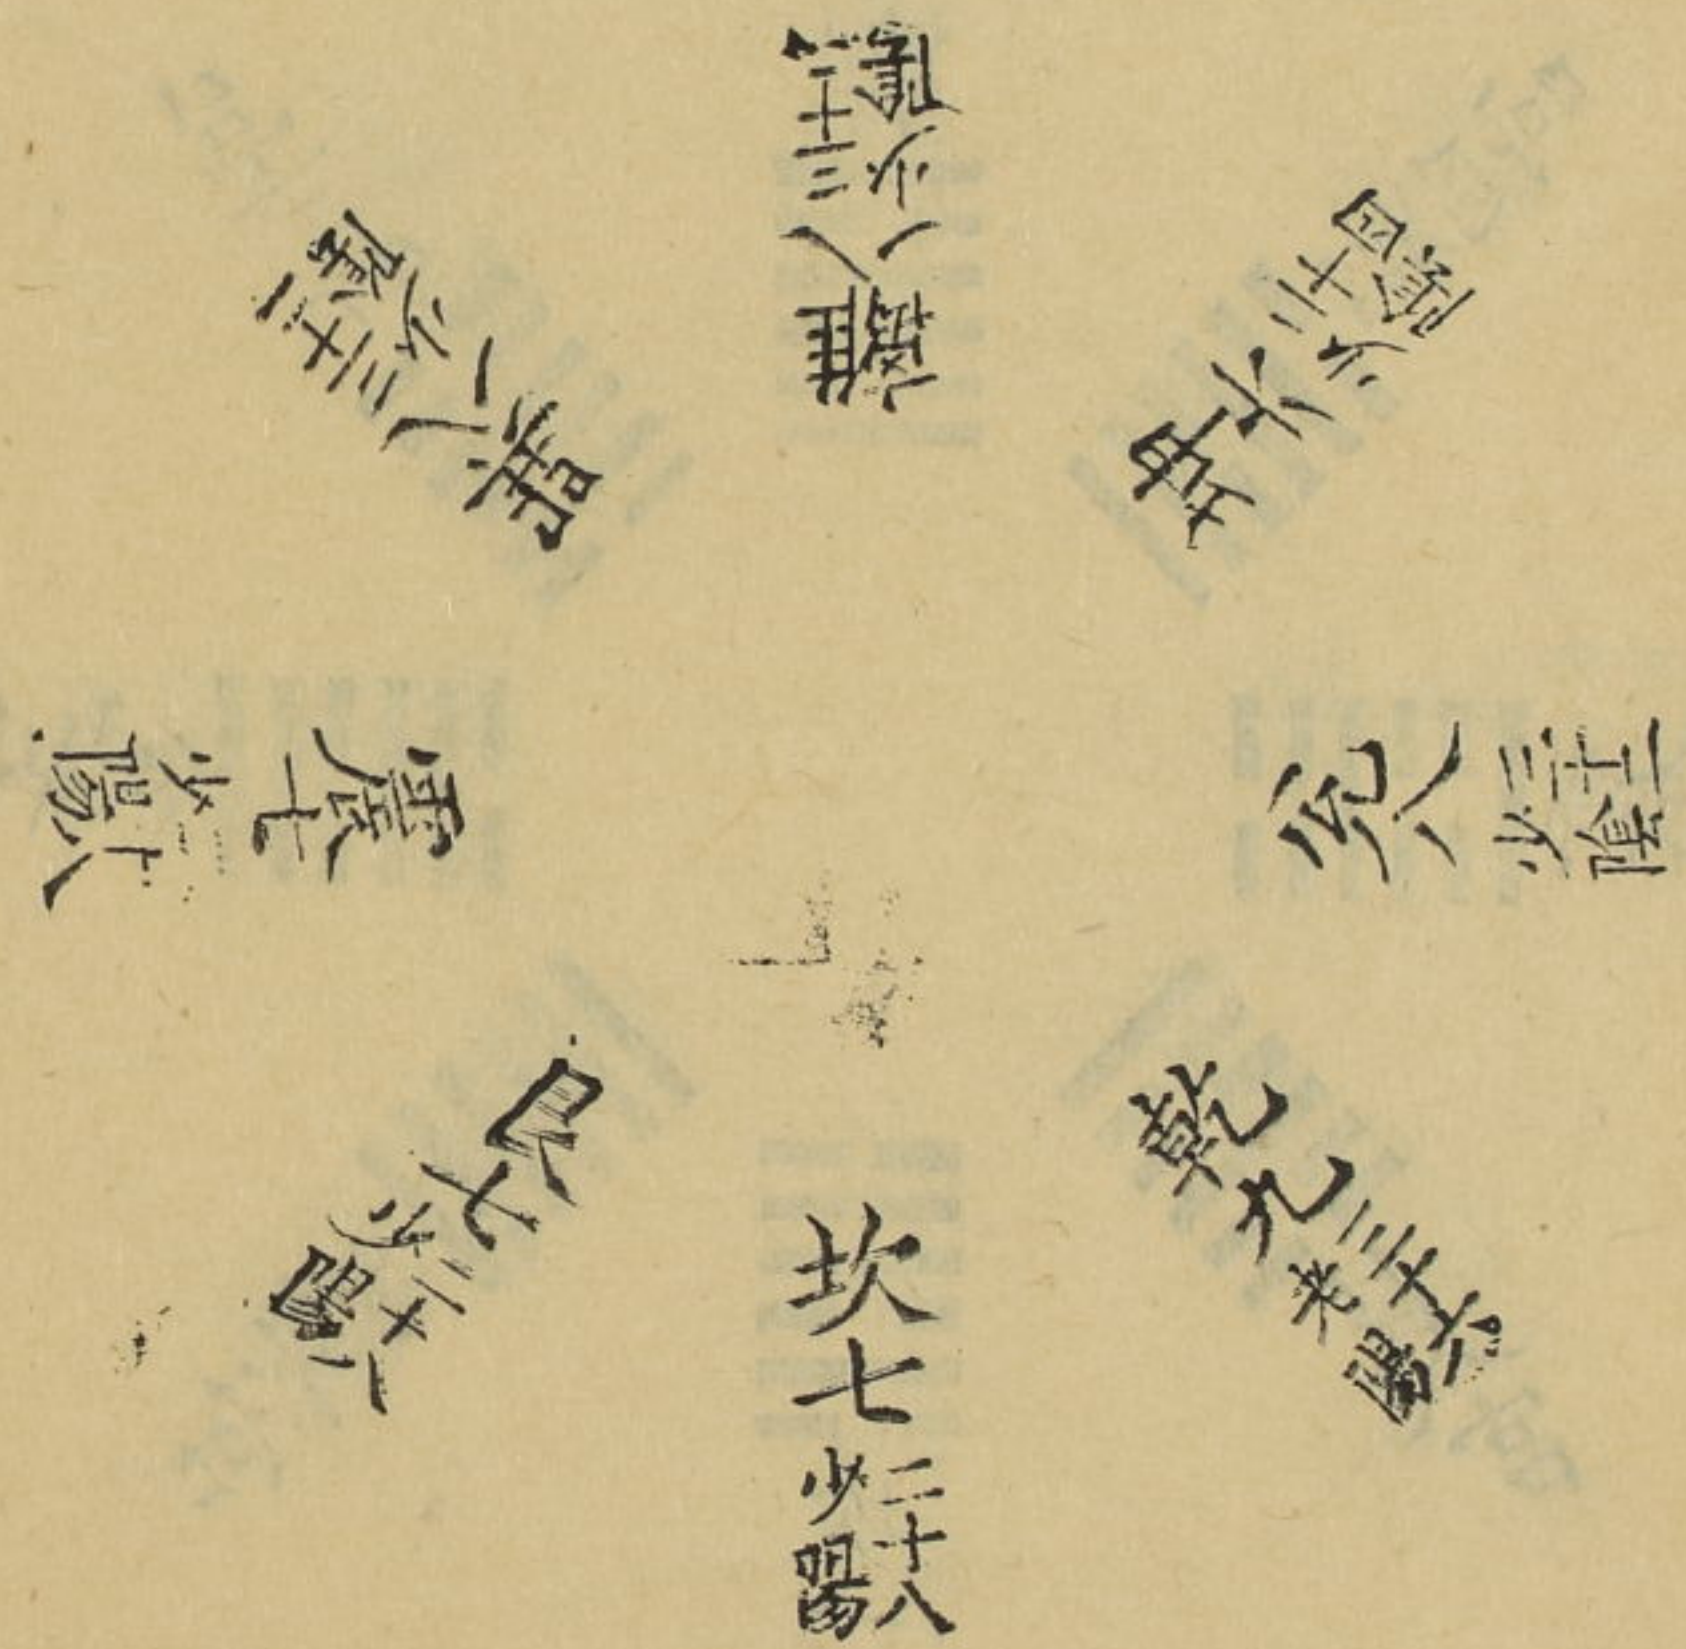 離八
三十二
少陰
坤六
二十四
少陰
兌八
三十二
少陰
乾九
三十六
老陽
坎七
二十八
少陽
艮七
二十八
少陽
震七
二十八
少陽
巽八
三十二
少陰